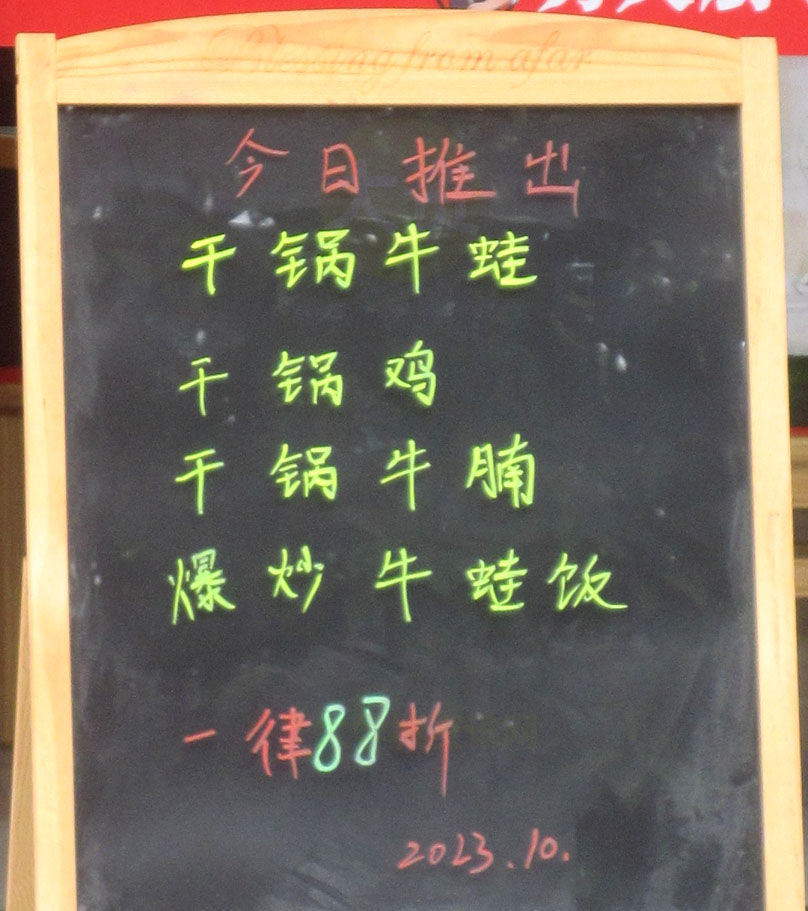 Blessing from afar
今日推出
干锅牛蛙
干锅鸡
干锅牛腩
爆炒牛蛙饭
一律88折
2023.10.